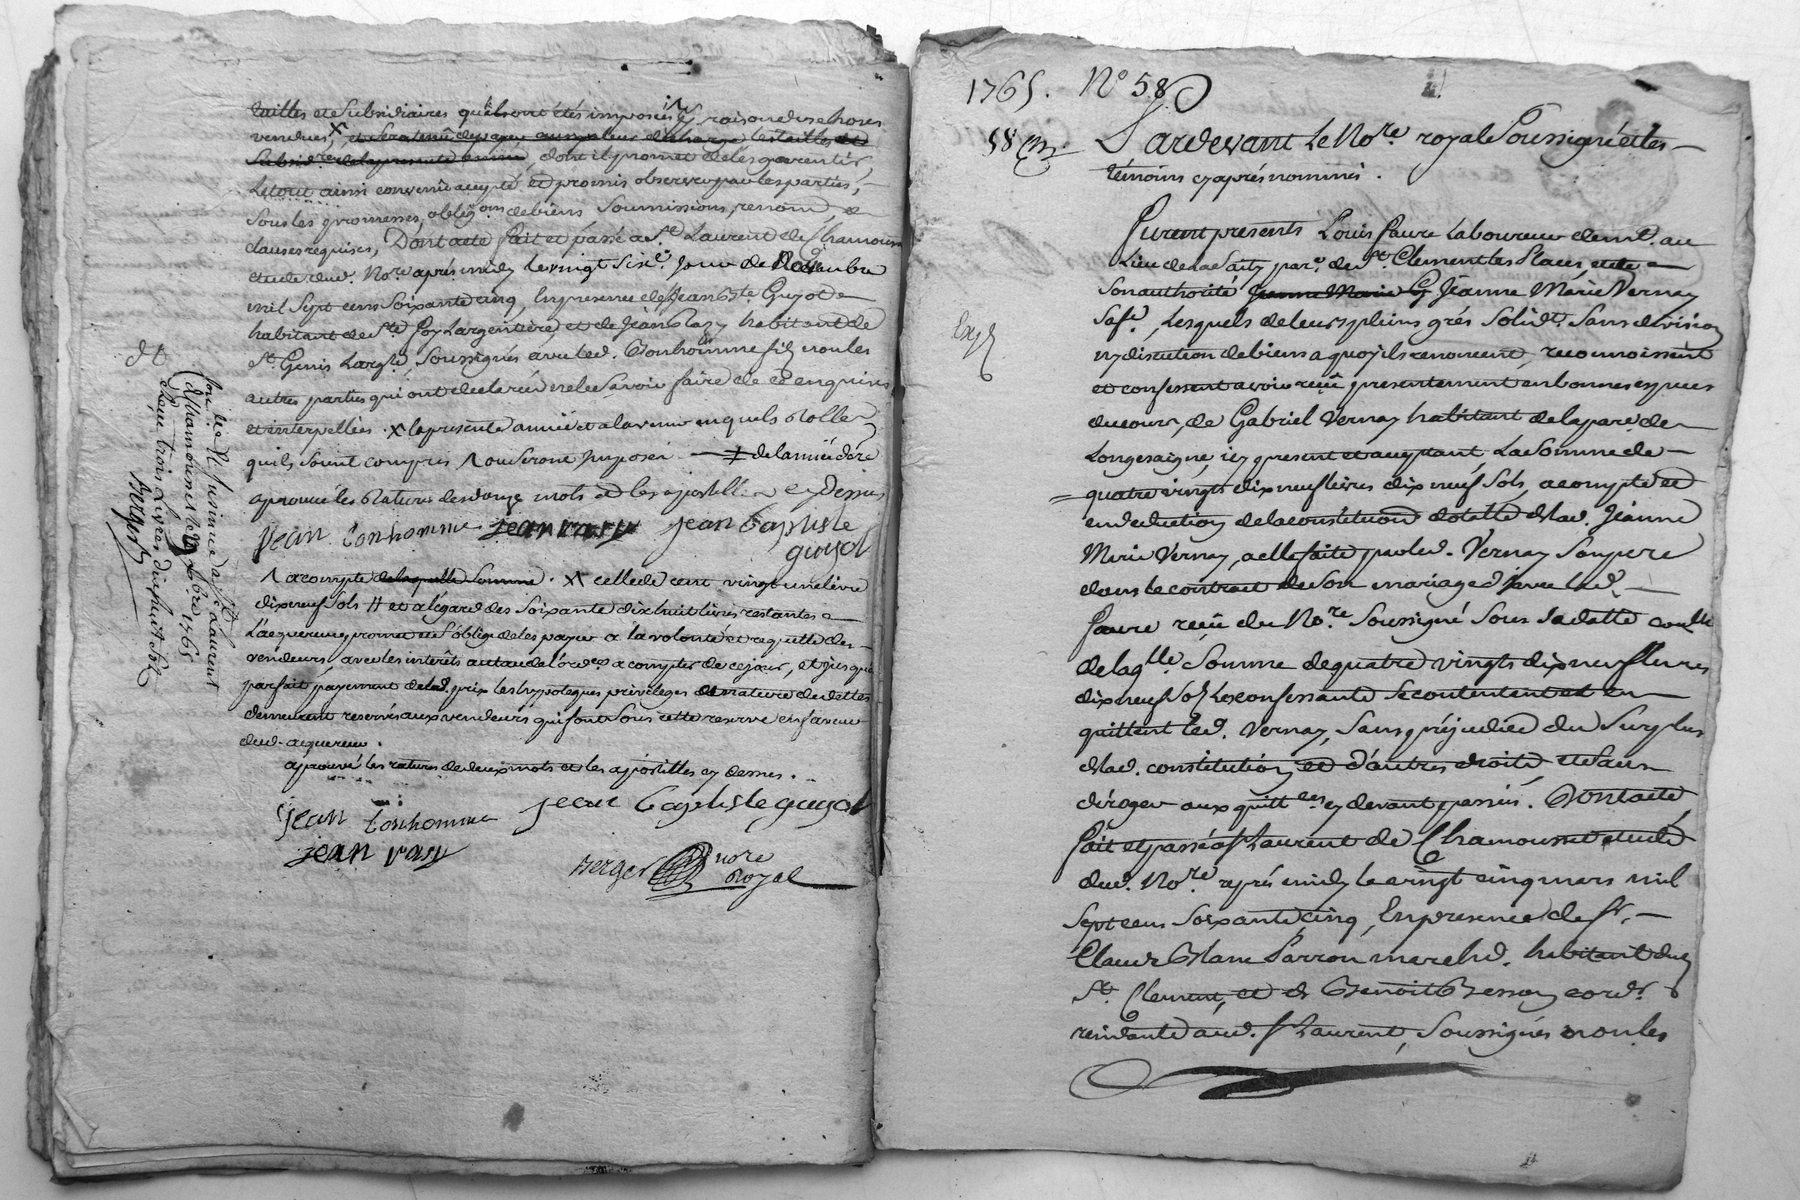 tailles et Subsidiaires quils ont étés imposés icy raison des choses
vendues, X et sera tenu de payer aussy leur decharge les tailles et
Subsid.res de la presente année, dont il promet de les garentir,
Le tout ainsi convenu accepté et promis observer par les parties,
Sous les promesses, oblig.ons de biens, Soumissions, renon.on, et
clauses requises, Dont acte fait et passé a St Laurent de Chamousset
etude dud. No.re après midy le vingt six.e jour de Novembre
mil Sept cens Soixante cinq, En presence de Jean B.te Guyot
habitant de S.te Foy Largentière, et de Jean Razy habitant de
St. Genis Largt.re, Soussignés avec led. Bonhomme fils non les
autres parties qui ont declaré ne le Savoir faire de ce enquises
et interpellées. X la presente année et a lavenir en quels Rolles
quils soient compris /\ ou seront imposés
aprouvé les Ratures de onze mots et les apostilles cy dessus
Jean Bonhomme jean rasy jean baptiste
guyot
/\ a compte de laquelle Somme. X celle de cent vingt une livre
dix neuf Sols # et a légard des Soixante dix huit livres restantes
Lacquereur promet et s'oblige de les payer a la volonté et requette des
vendeurs avec les interêts au taux de l'ord.ce a compter de ce jour, et jusqua
parfait payement delad. prix les hypoteques privileges et nature de dettes
demeurent reservés aux vendeurs qui font Sous cette reserve en faveur
dud. acquereur.
aprouvé les ratures de deux mots et les apostilles cy dessus.
jean bonhomme jean baptiste guyot
jean rasy
Berger no.re
Royal
Con.lé et insinué a St Laurent
de Chamousset le 9bre 1765
Reçu trois Livres dix huit Sols
Berger
1765. N.o 58
58
Pardevant Le No.re royal Soussigné et les
témoins cy après nommés.
Furent presents Louis Faure Laboureur demt. au
Lieu de la par.e de St. Clement les Places, et de
Son authorité Jeanne Marie Jeanne Marie Vernay
Sa f.e, Lesquels de leurs pleins grés Solid.t Sans division
ny discution de biens a quoy ils renoncent, reconnoissent
et confessent avoir reçû presentement en bonnes especes
du cours, de Gabriel Vernay habitant de la par.e de
Longesaigne, icy present et acceptant La Somme de
quatre vingts dix neuf livres dix neuf Sols, a compte et
en deduction de la constitution dotalle de lad. Jeanne
Marie Vernay, a elle faite par led. Vernay Son pere
dans le contract de Son mariage d'avec led.
faure reçû du No.re Soussigné Sous sa datte
de laq.lle Somme de quatre vingts dix neuf livres
dix neuf Sols Les confessants Se contentent et en
quittent led. Vernay, Sans préjudice du Surplus
de lad. constitution et d'autres droits, et Sans
déroger aux quitt.ces cy devant passées. Dont acte,
fait et passé a St Laurent de Chamousset etude
dud. No.re après midy le vingt cinq mars mil
Sept cens Soixante cinq, En presence de Sr.
Claude Parron march.d habitant dud.
St. Clement, et de Benoit Besson cord.r
residants aud. St Laurent, Soussignés non les